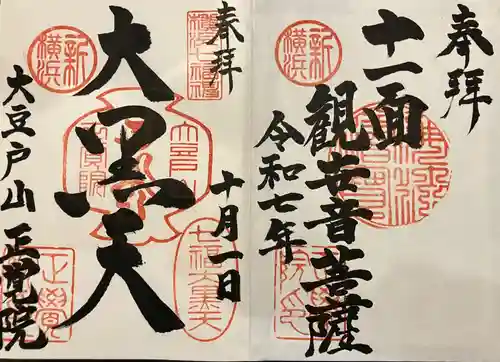 奉拝
十一面
観世音菩薩
令和七年
新
横浜
奉拝
十月一日
大黒天
大豆戸山 正覚院
新
横浜
横浜七福神
七福大黒天
正覺